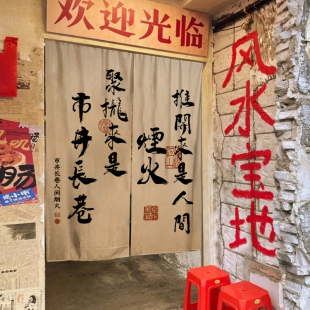 欢迎光临
推開來是人間
煙火
聚攏來是
市井長巷
市井長巷人间烟火
风水宝地
肠